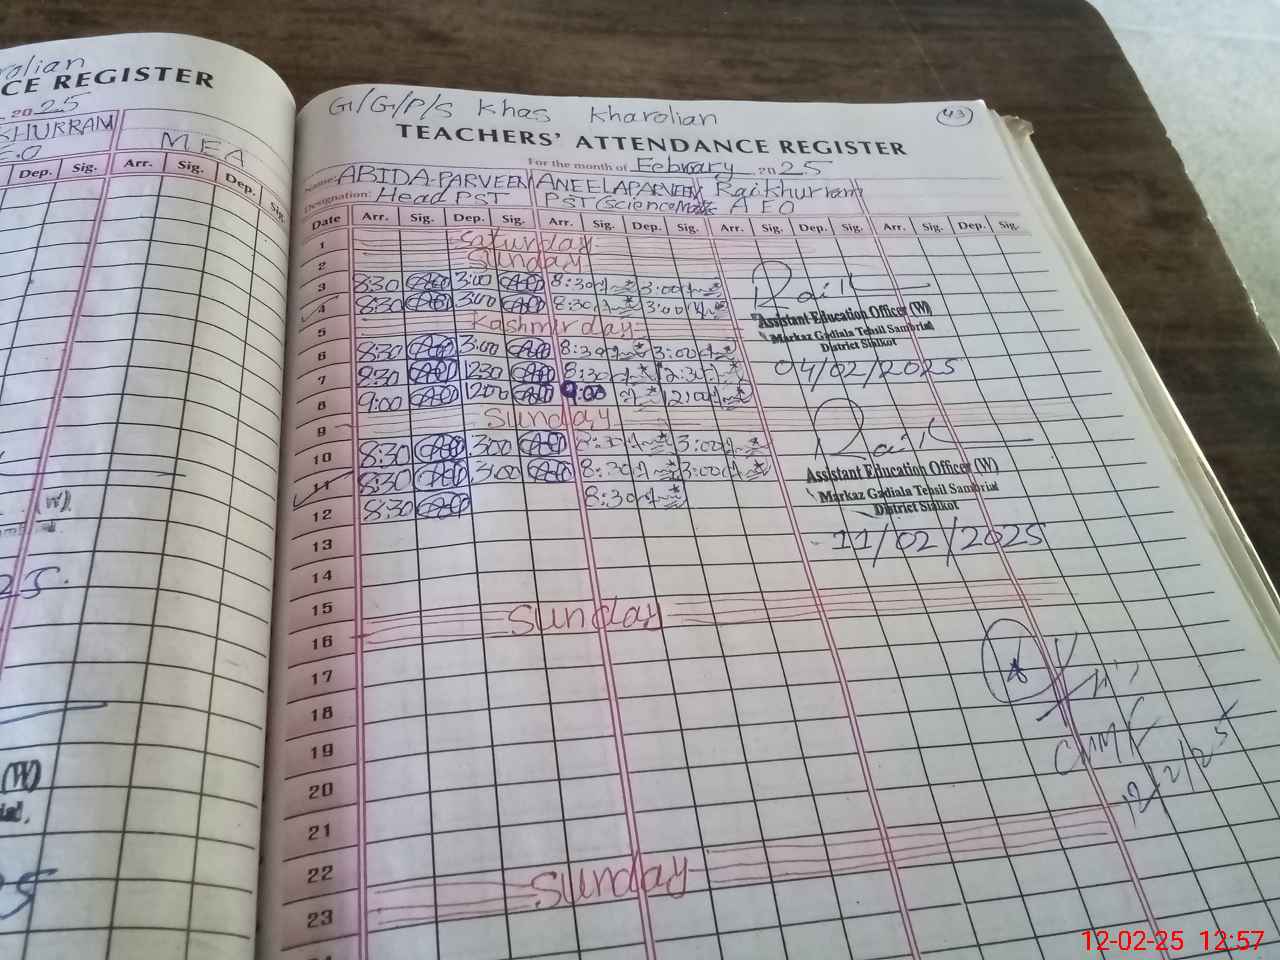 CE REGISTER
20 25
KHURRAM
M.E.A
Dep. Sig. Arr. Sig. Dep. Sig.
(W)
25
G/G/P/S Khas Kharolian
43
TEACHERS' ATTENDANCE REGISTER
For the month of February 20 25
Name: ABIDA PARVEEN ANEELA PARVEEN Rai Khurram
Designation: Head PST PST (Science Math A E O
Date Arr. Sig. Dep. Sig. Arr. Sig. Dep. Arr. Sig. Dep. Sig. Arr. Sig. Dep. Sig.
1 Saturday
2 Sunday
3 8:30 3:00 8:30 3:00
4 8:30 3:00 8:30 3:00
5 Kashmir day
6 8:30 3:00 8:30 3:00
7 8:30 12:30 8:30 12:30
8 9:00 12:00 9:00 12:00
9 Sunday
10 8:30 3:00 8:30 3:00
11 8:30 3:00 8:30 3:00
12 8:30 8:30
13
14
15
16 Sunday
17
18
19
20
21
22
23 Sunday
Assistant Education Officer (W)
Markaz Gadiala Tehsil Sambrial
District Sialkot
04/02/2025
Assistant Education Officer (W)
Markaz Gadiala Tehsil Sambrial
District Sialkot
11/02/2025
12/2/25
12-02-25 12:57